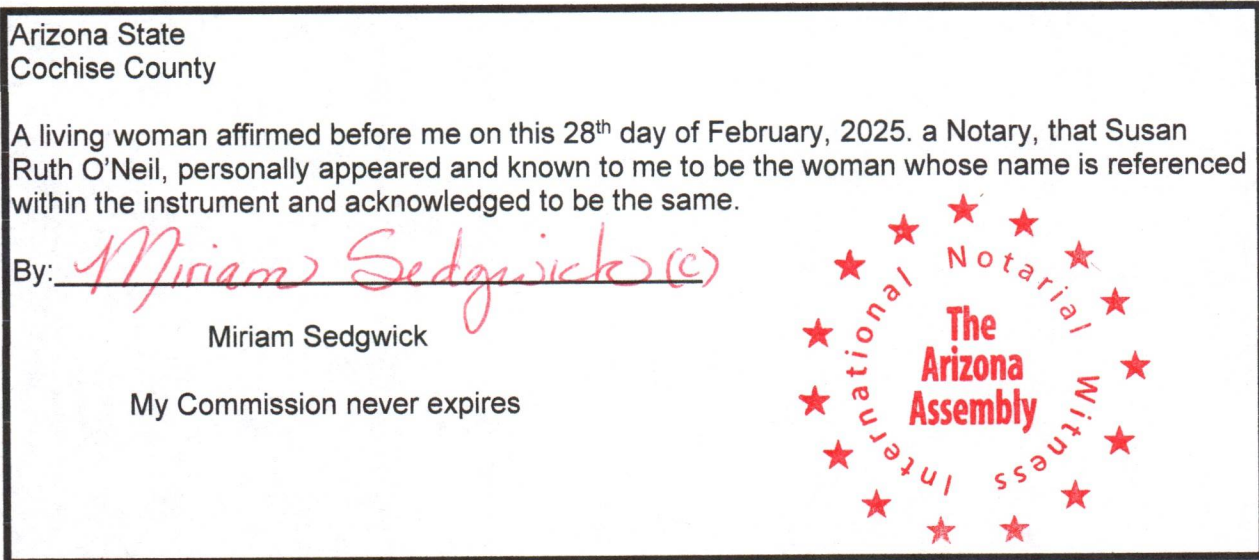 Arizona State
Cochise County
A living woman affirmed before me on this 28th day of February, 2025. a Notary, that Susan
Ruth O'Neil, personally appeared and known to me to be the woman whose name is referenced
within the instrument and acknowledged to be the same.
By: Miriam Sedgwick (c)
Miriam Sedgwick
My Commission never expires
International Notarial Witness
The
Arizona
Assembly